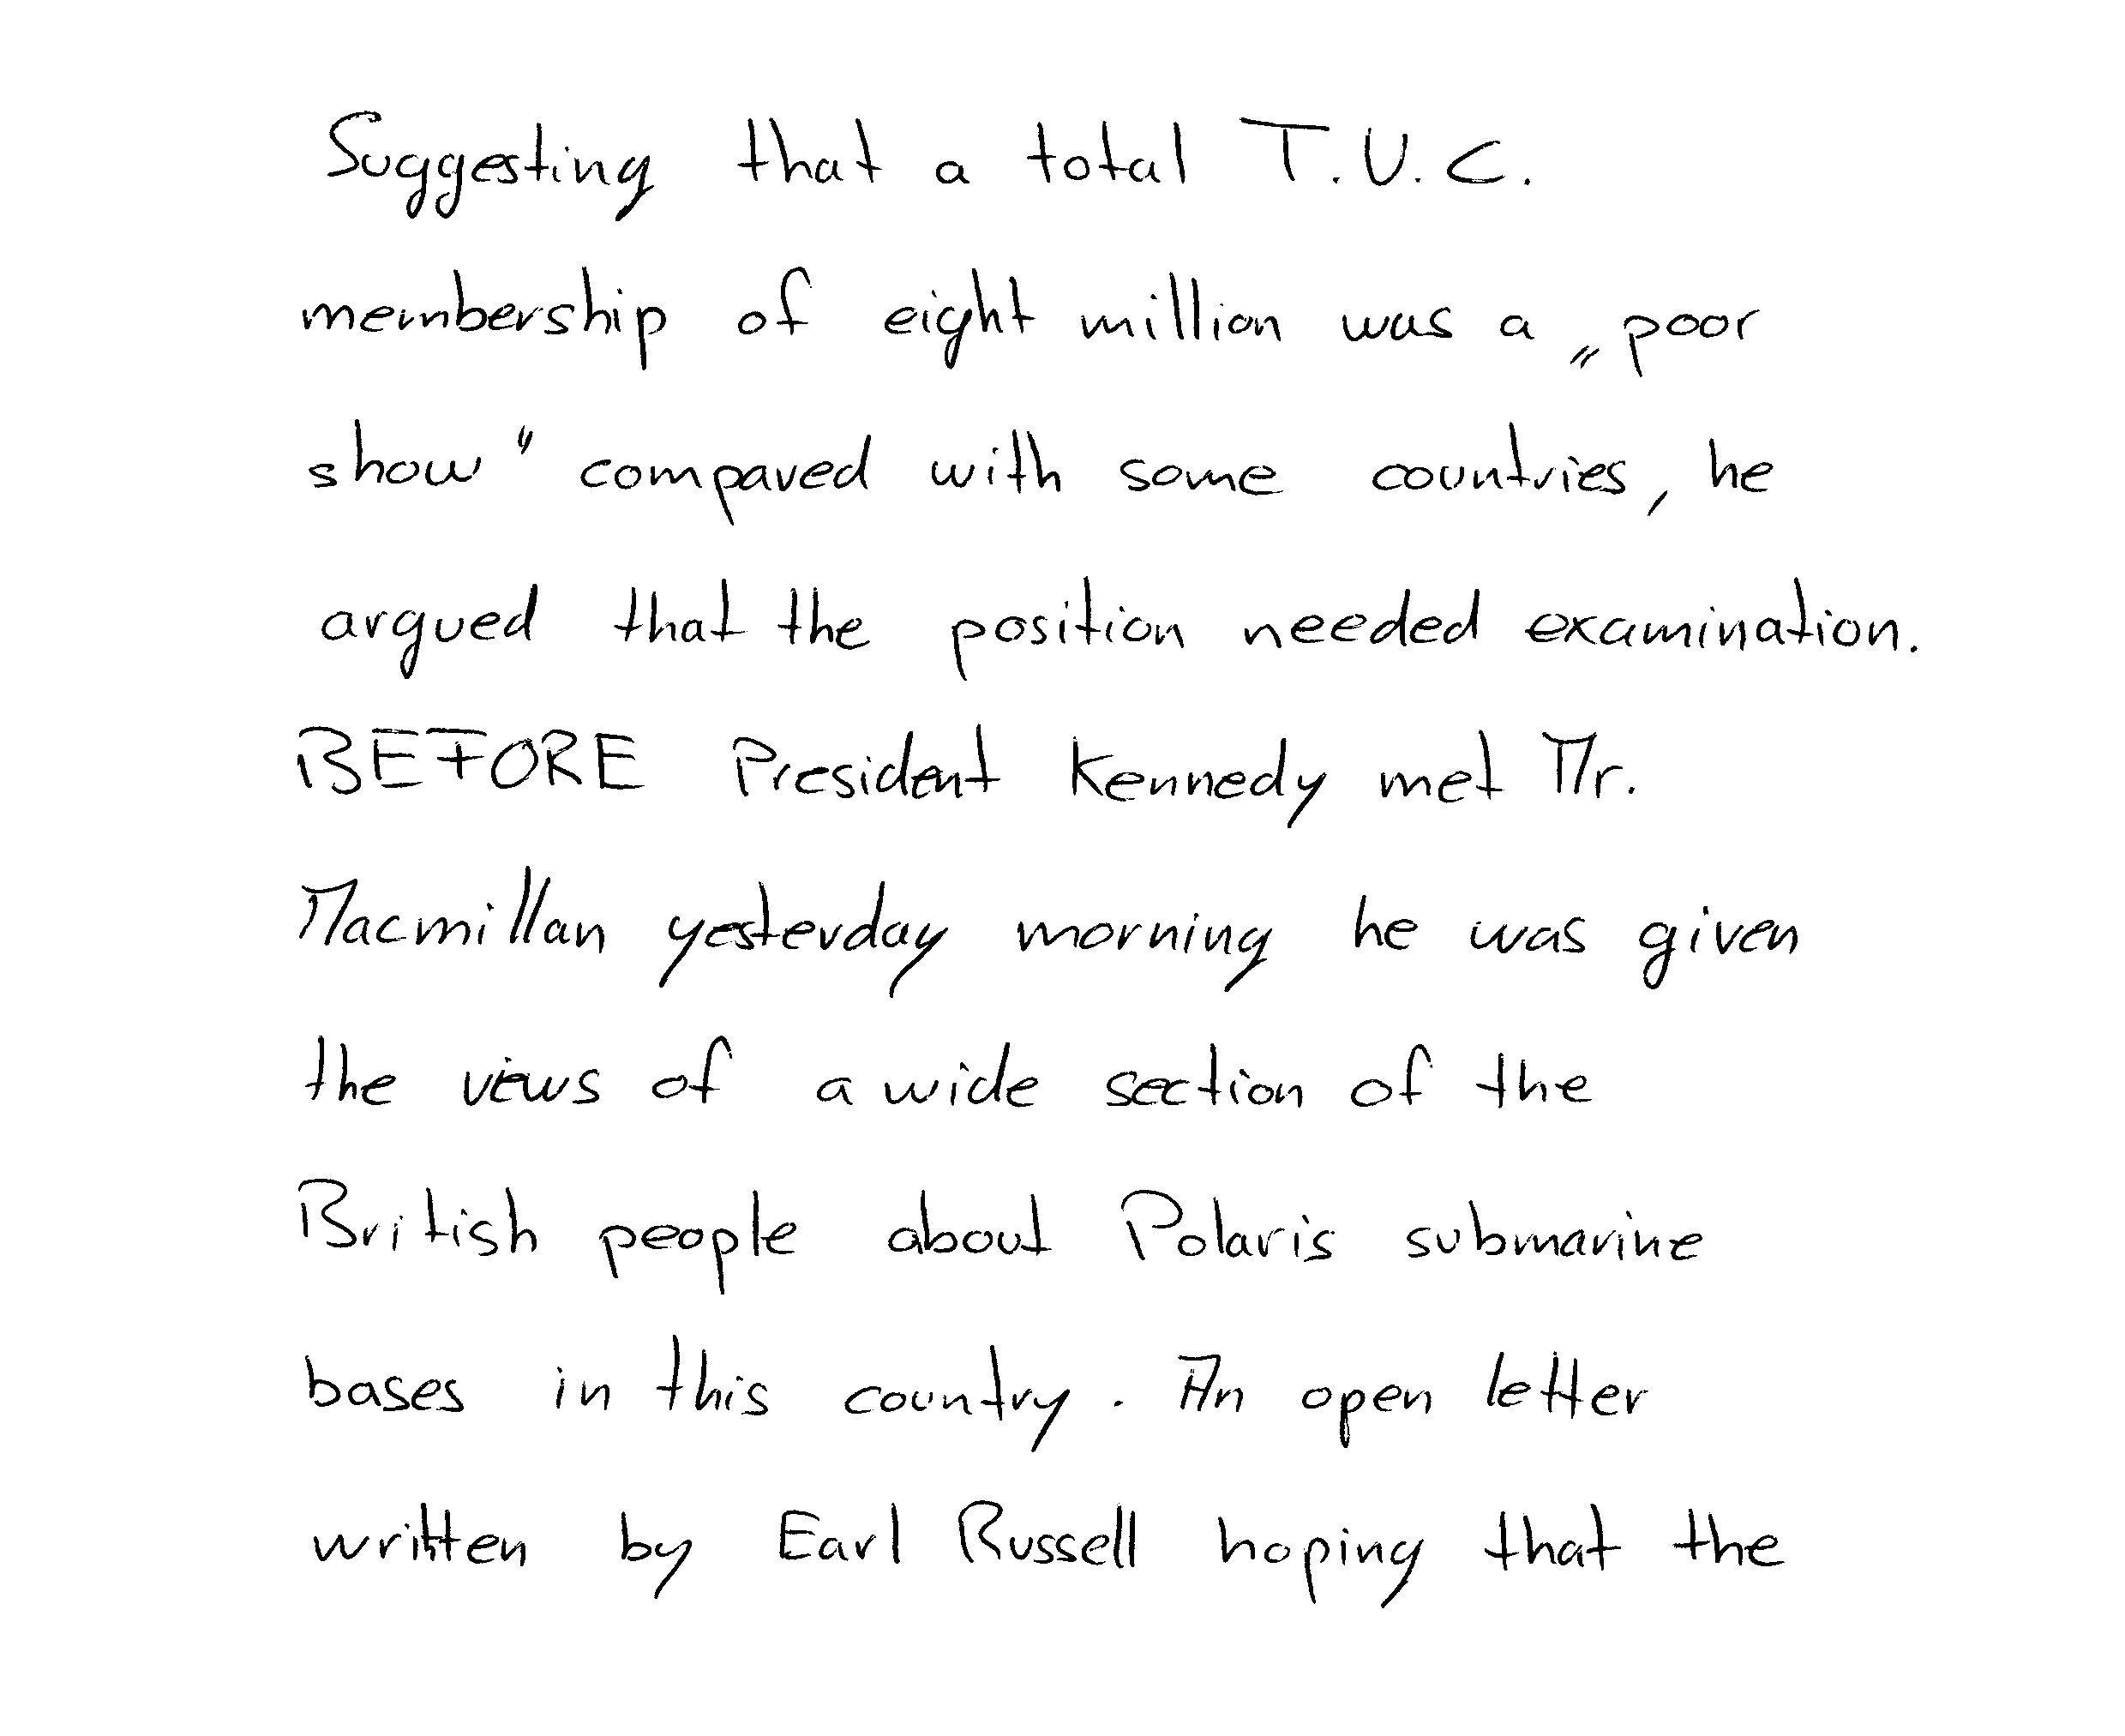 Suggesting that a total T.U.C.
membership of eight million was a „poor
show" compared with some countries, he
argued that the position needed examination.
BEFORE President Kennedy met Mr.
Macmillan yesterday morning he was given
the views of a wide section of the
British people about Polaris submarine
bases in this country. An open letter
written by Earl Russell hoping that the